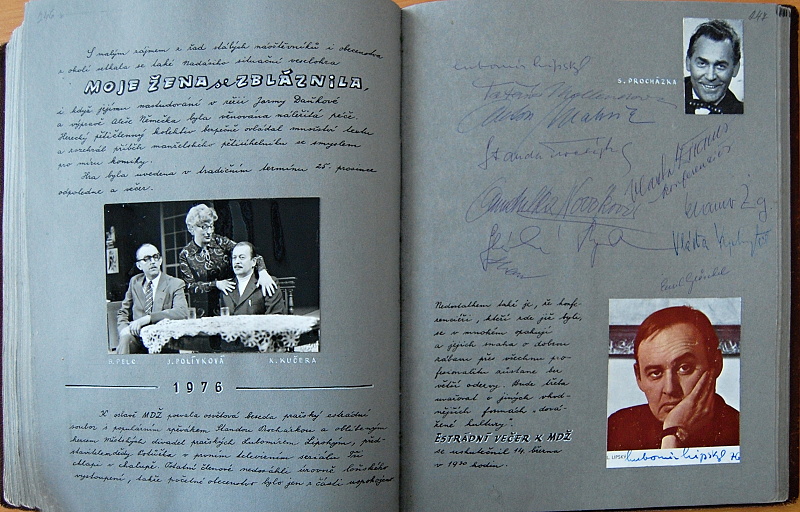 S malým zájmem z řad stálých návštěvníků i obecenstva
z okolí setkala se také Nasáního situační veselohra
MOJE ŽENA se ZBLÁZNILA,
i když jejímu nastudování v režii Jarmy Daňkové
a výpravě Aleše Němečka byla věnována náležitá péče.
Herecký pětičlenný kolektiv bezpečně ovládal množství textu
a rozehrál příběh manželského pětiúhelníku se smyslem
pro míru komiky.
Hra byla uvedena v tradičním termínu 25. prosince
odpoledne a večer.
P. PELC J. POLÍVKOVÁ K. KUČERA
1976
K oslavě MDŽ pozvala osvětová beseda pražský estrádní
soubor s populárním zpěvákem Standou Procházkou a oblíbeným
hercem Městských divadel pražských Lubomírem Lipským, před-
stavitelem dědy Potůčka v prvním televizním seriálu Tři
chlapi v chalupě. Ostatní členové nedosáhli úrovně loňského
vystoupení, takže početné obecenstvo bylo jen z části uspokojeno
247
Lubomír Lipský
S. PROCHÁZKA
konferenciér
Nedostatkem také je, že konfe-
renciéři, kteří zde již byli,
se v mnohém opakují
a jejich snaha o dobrou
zábavu přes všechnu pro-
fesionalitu zůstane bez
větší odezvy. Bude třeba
uvažovat o jiných vhod-
nějších formách „dová-
žené kultury".
ESTRÁDNÍ VEČER K MDŽ
se uskutečnil 14. března
v 1930 hodin.
L. LIPSKÝ Lubomír Lipský 76